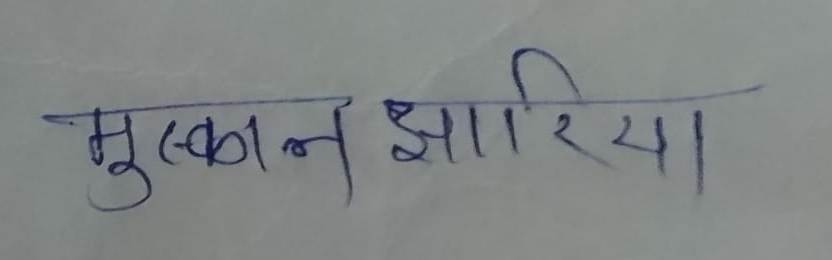 मुस्कान झारिया